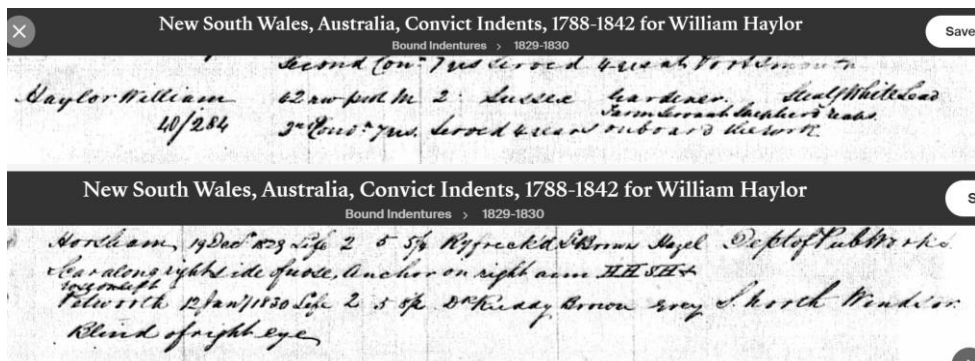 New South Wales, Australia, Convict Indents, 1788-1842 for William Haylor
Save
Bound Indentures > 1829-1830
Second Conn 7 yrs served 4 years at Portsmouth
Haylor William 42 2 Sussex Gardener. Steal White Lead
Farm Servant Shepherd reaps
40/284 3rd Conn 7 yrs. Served 4 years onboard the York
New South Wales, Australia, Convict Indents, 1788-1842 for William Haylor
S
Bound Indentures > 1829-1830
Horsham, 19 Decr 1829 Life 2 5 5¾ Ry freck'd S. Brown Hazel Dept of Pub Works.
Scar along right side of nose, Anchor on right arm
Petworth 12 Jany 1830 Life 2 5 Dk Ruddy Brown Grey Windsor.
Blind of right eye